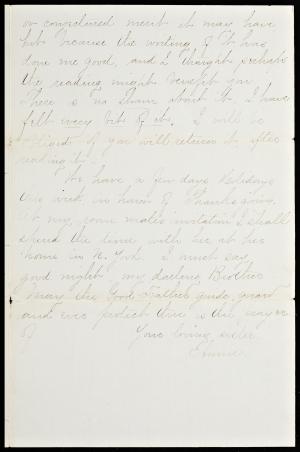 or considered merit it may have
but because the writing of it has
done me good, and I thought perhaps
the reading might benefit you.
There is no sham about it I have
felt every bit of it. I will be
obliged if you will return it after
reading it.
We have a few days Holidays
this week in honor of Thanksgiving.
At my room mate's invitation I shall
spend the time with her at her
home in N. York. I must say
good night my darling Brother
May the Good Father guide, guard
and ever protect thee is the prayer
of Your loving sister